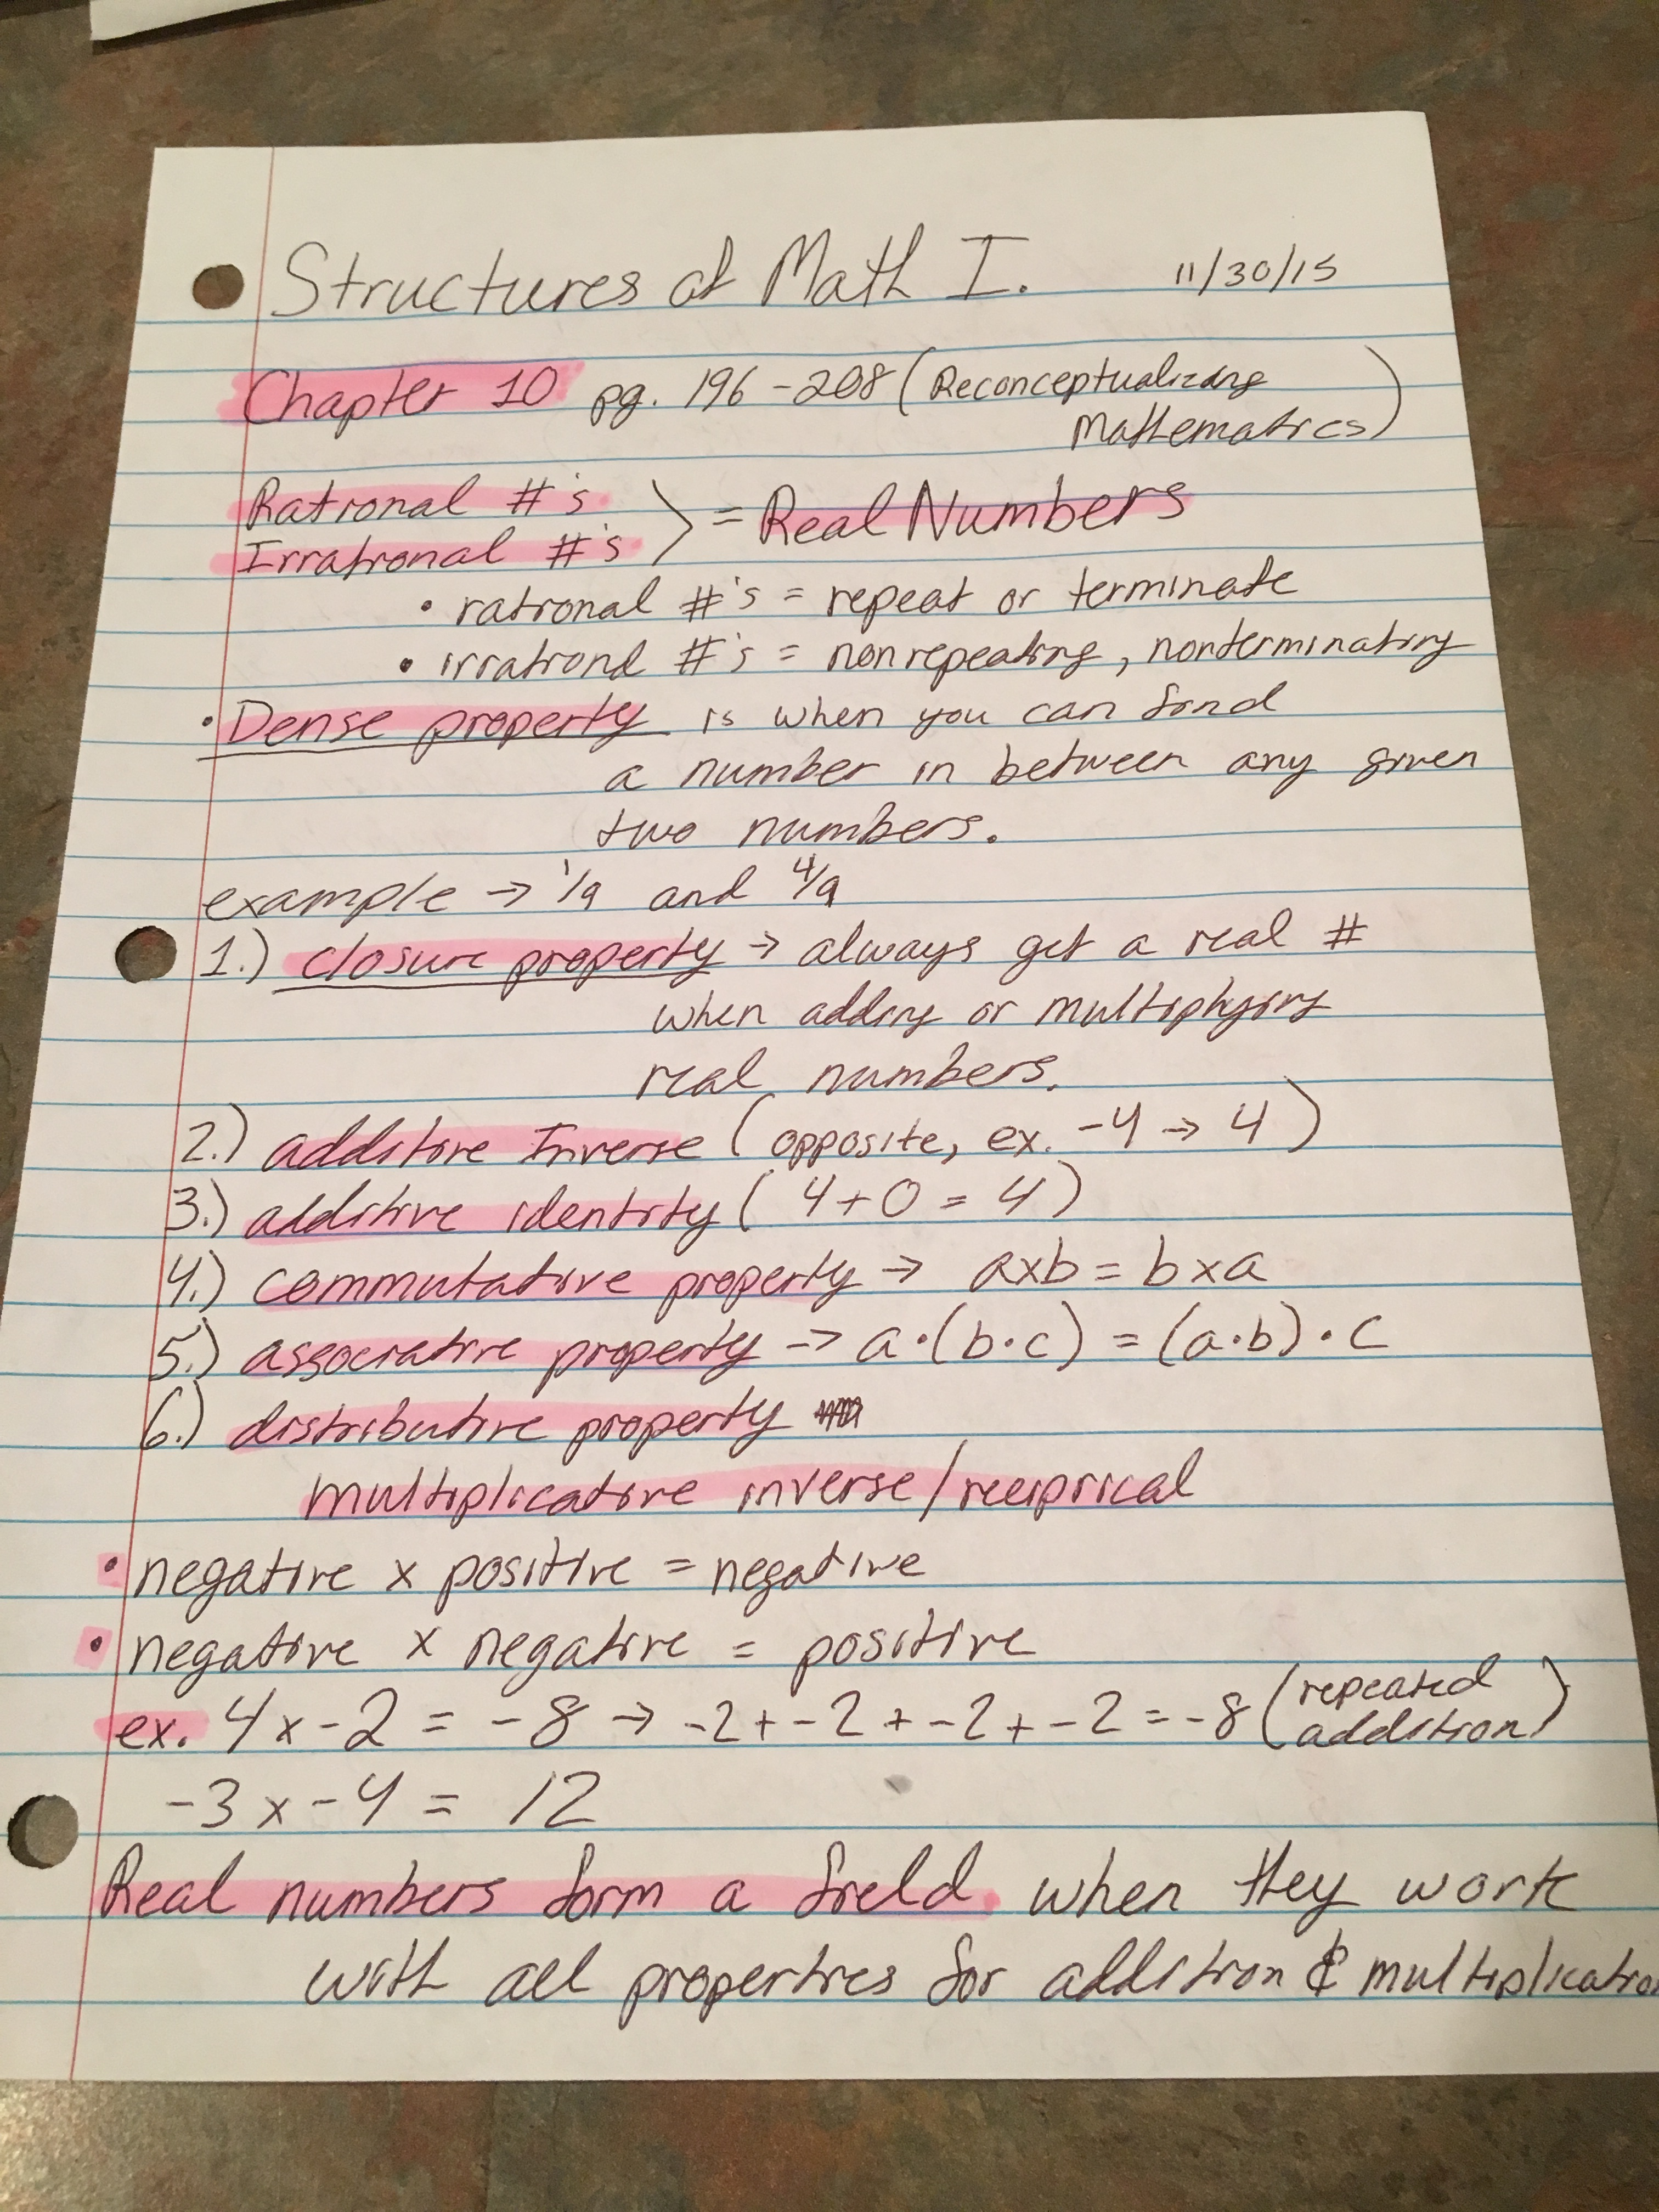 Structures of Math I. 11/30/15
Chapter 10 pg. 196-208 (Reconceptualizing
Mathematics)
Rational #'s
Irrational #'s > = Real Numbers
• rational #'s = repeat or terminate
• irrational #'s = nonrepeating, nonterminating
• Dense property is when you can find
a number in between any given
two numbers.
example → 1/9 and 4/9
1.) closure property → always get a real #
when adding or multiplying
real numbers.
2.) additive Inverse (opposite, ex. -4 → 4)
3.) additive identity (4+0=4)
4.) commutative property → axb = bxa
5.) associative property → a·(b·c) = (a·b)·c
6.) distributive property
multiplicative inverse/reciprical
• negative x positive = negative
• negative x negative = positive
ex. 4x-2 = -8 → -2+-2+-2+-2=-8 (repeated
addition)
-3x-4 = 12
Real numbers form a field when they work
with all properties for addition & multiplication